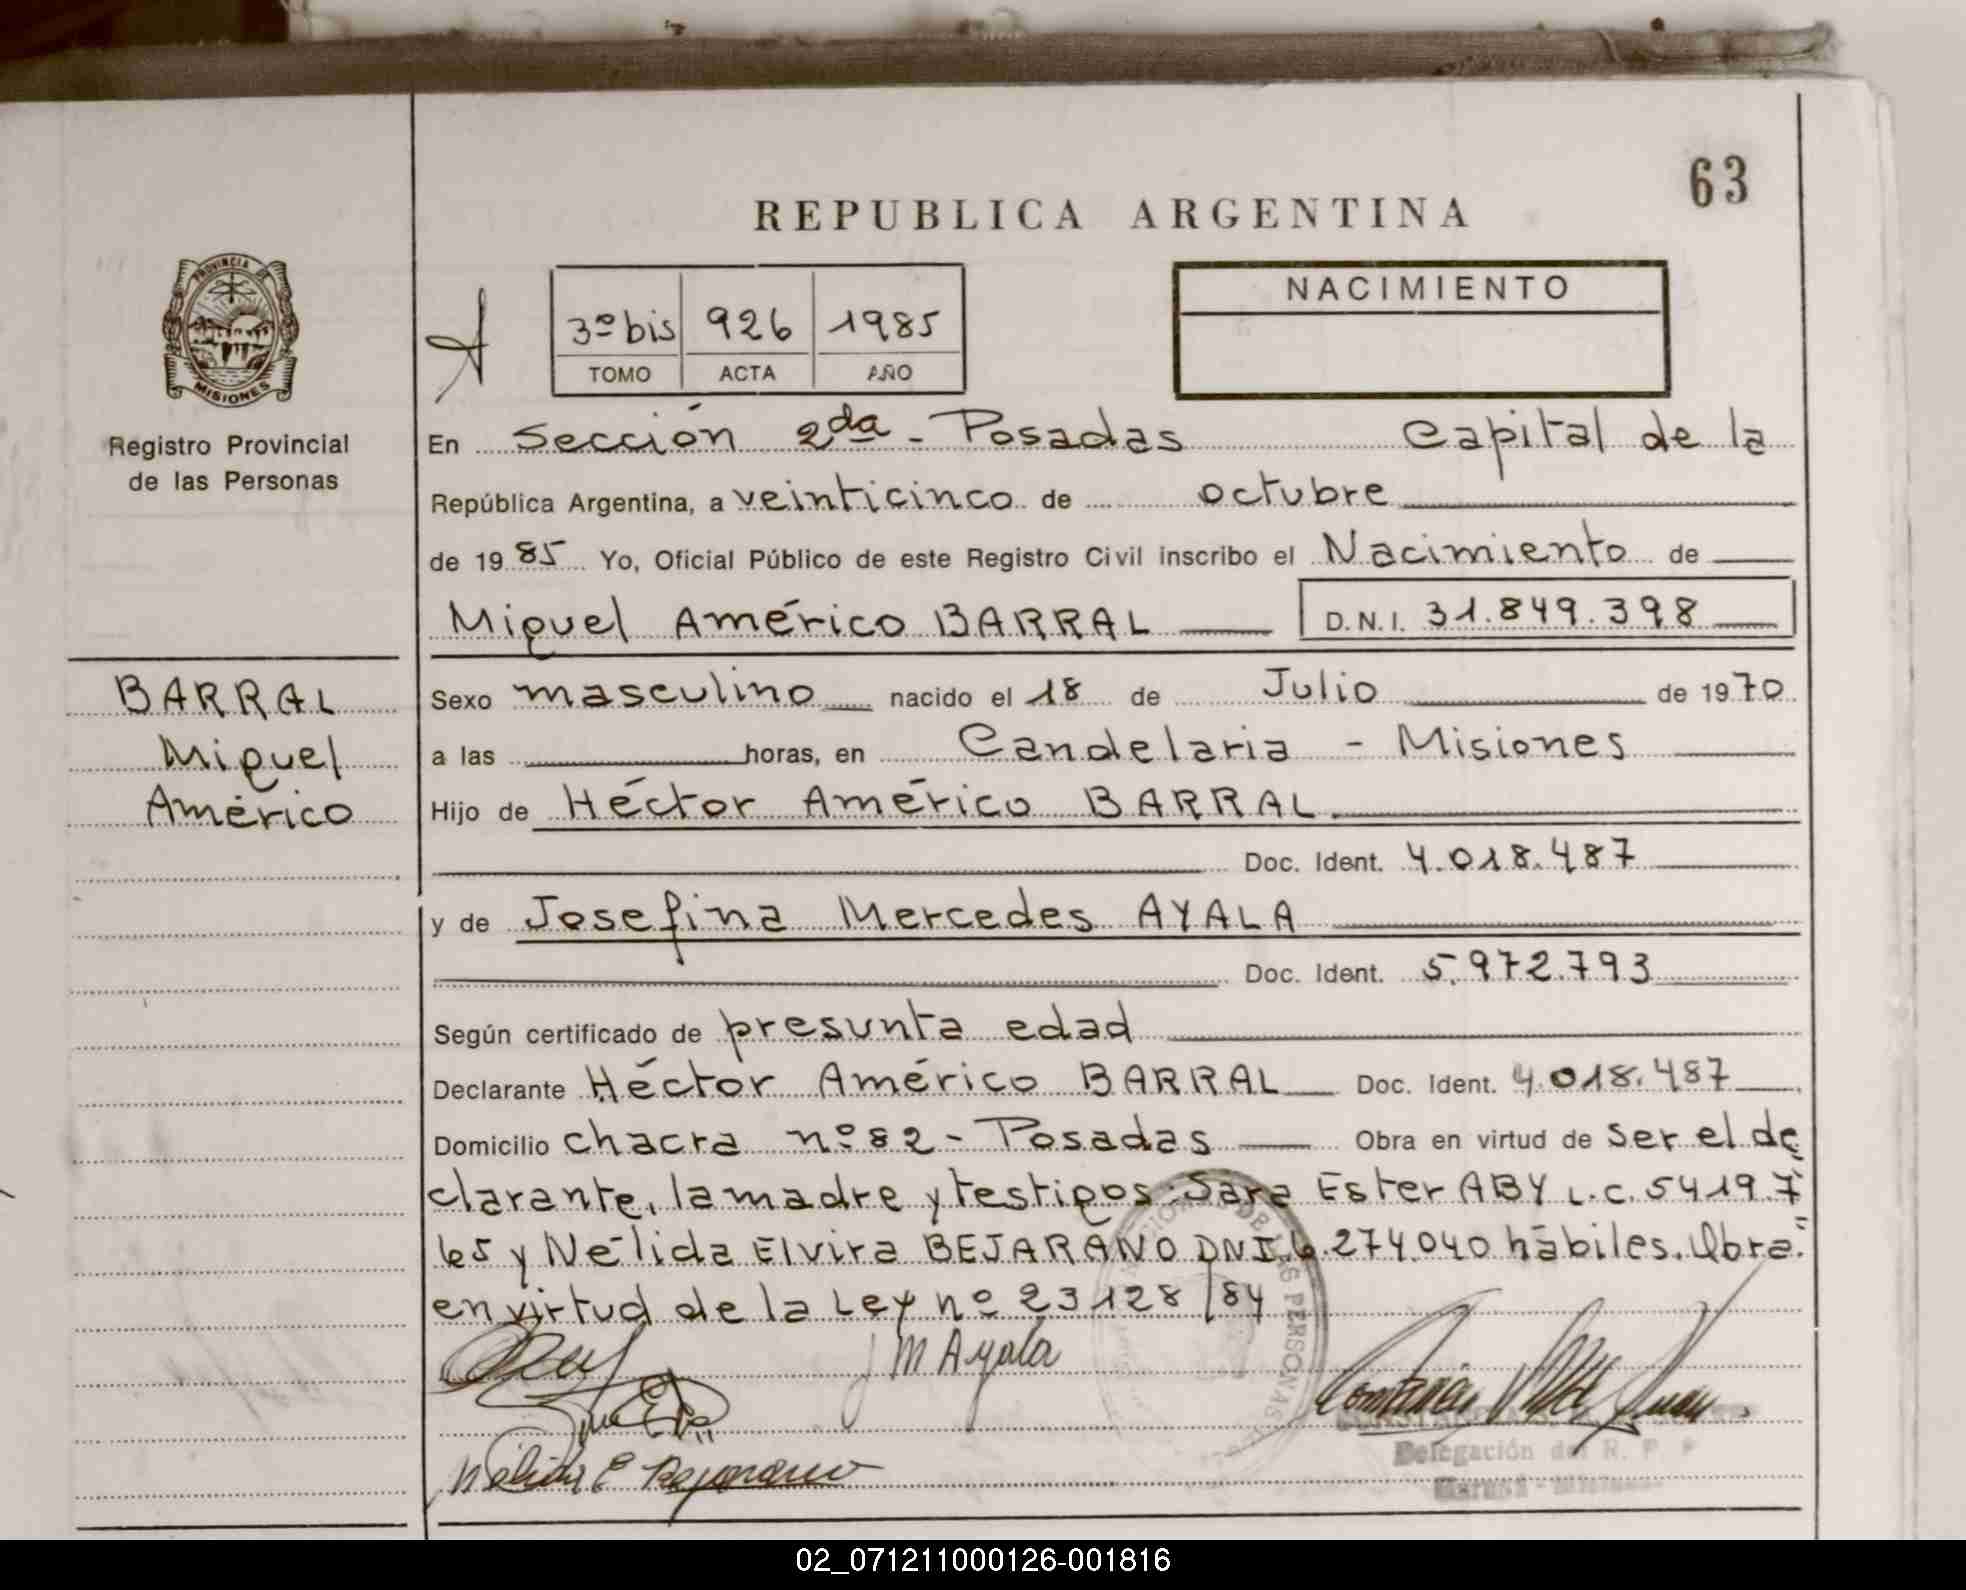 63
REPUBLICA ARGENTINA
PROVINCIA DE
MISIONES
NACIMIENTO
3º bis 926 1985
TOMO ACTA AÑO
Registro Provincial
de las Personas
En Sección 2da - Posadas Capital de la
República Argentina, a veinticinco de octubre
de 1985 Yo, Oficial Público de este Registro Civil inscribo el Nacimiento de
Miguel Américo BARRAL D.N.I. 31.849.398
BARRAL
Miguel
Américo
Sexo masculino nacido el 18 de Julio de 1970
a las horas, en Candelaria - Misiones
Hijo de Héctor Américo BARRAL
Doc. Ident. 4.018.487
y de Josefina Mercedes AYALA
Doc. Ident. 5.972.793
Según certificado de presunta edad
Declarante Héctor Américo BARRAL Doc. Ident. 4.018.487
Domicilio chacra nº 82 - Posadas Obra en virtud de ser el de
clarante, la madre y testigos: Sara Ester ABY L.C. 5419.7
65 y Nélida Elvira BEJARANO DNI. 6.274.040 hábiles. Obra
en virtud de la Ley nº 23128/84
J M Ayala
Nélida E Bejarano
Delegación del R. P. P
PERSONAS
02_071211000126-001816